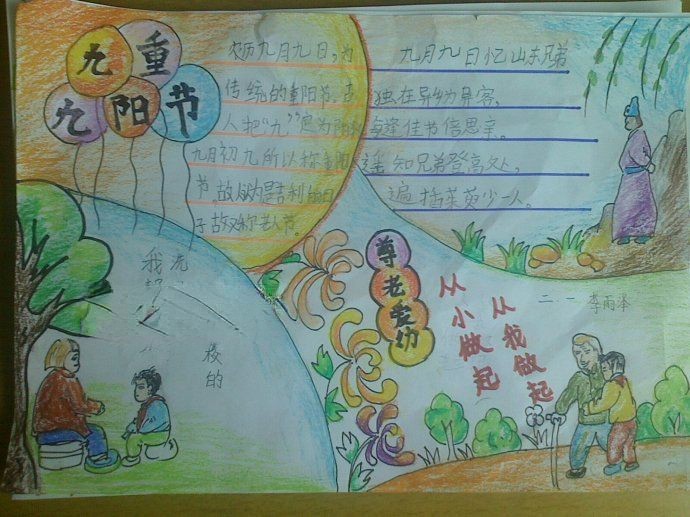 九重
九阳节
农历九月九日,为
传统的重阳节,古
人把“九”定为阳数
九月初九所以称重阳
节,故认为是吉利的日
子,故又称老人节。
九月九日忆山东兄弟
独在异幼异客,
每逢佳节倍思亲。
遥知兄弟登高处,
遍插茱萸少一人。
尊老爱幼
从小做起
从我做起
二一 李雨泽
我 洗
校
的